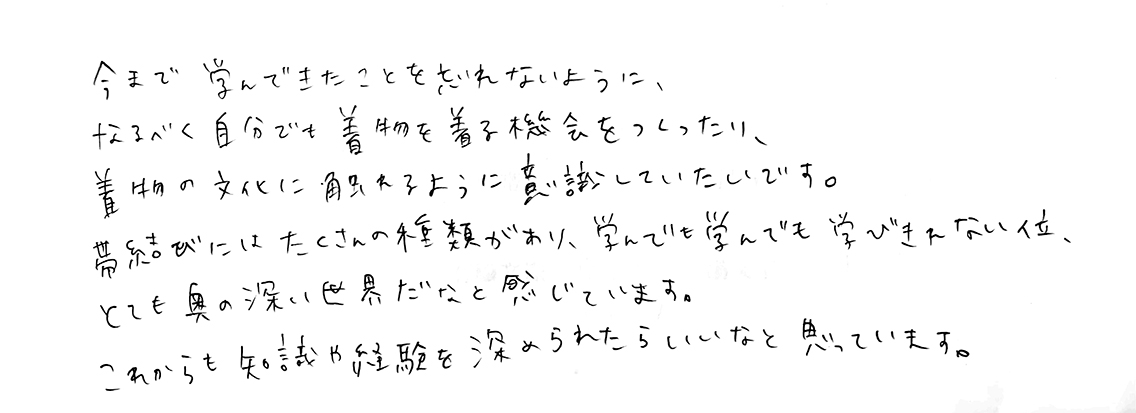 今まで学んできたことを忘れないように、
なるべく自分でも着物を着る機会をつくったり、
着物の文化に触れるように意識していたいです。
帯結びにはたくさんの種類があり、学んでも学んでも学びきれない位、
とても奥の深い世界だなと感じています。
これからも知識や経験を深められたらいいなと思っています。